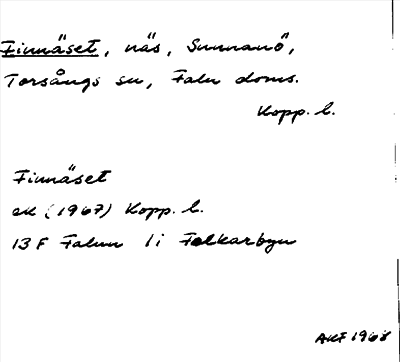 Finnäset, näs, Sunnanö,
Torsångs sn, Falu doms.
Kopp. l.
Finnäset
ek (1967) Kopp. l.
13 F Falun 1i Folkarbyn
AKF 1968